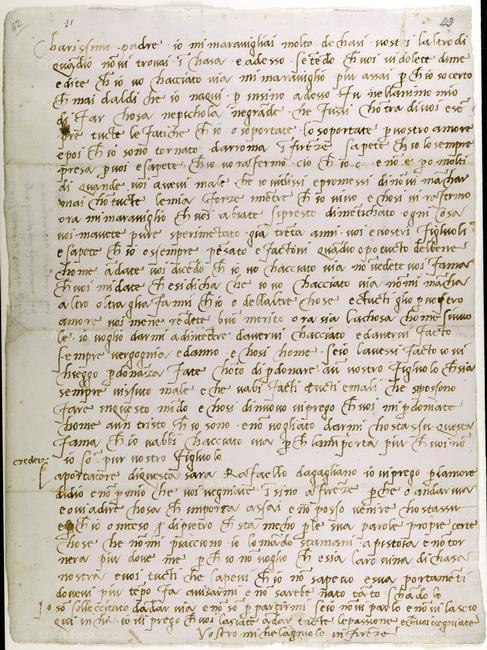 62 21 43
Charissimo padre io mi maravigliai molto de chasi vostri laltro di
quādo nō vi trovai ī chasa e adesso sētēdo ch voi vi dolete di me
e dite ch io vo chacciato via mi maraviglio piu assai p ch io so certo
ch mai dal di che io naqui p insino adesso fu nellanimo mio
di far chosa ne pichola ne grāde che fussi chōtra di voi e sē
pre tucte le fatiche ch io o soportate lo soportate p vostro amore
e poi ch io sono tornato da roma ī firēze sapete ch io lo sempre
presa p voi e sapete ch io vo rafermo cio ch io o e nō e po molti
di quande voi avevi male che io vi dissi e promessi di nō vi māchar
mai chō tucte le mia forze imētre ch io vivo e chosi vi rafermo
ora mi maraviglio ch voi abiate si presto dimētichato ogni cosa
voi mavete pure sperimētato gia trēta anni voi e vostri figluoli
e sapete ch io o sempre pēsato e factovi quādo o potuto del bene
chome ādate voi dicēdo ch io vo chacciato via nō vedete voi fama
ch voi mi date ch e si dicha che io vo chacciato via nō mi mācha
altro oltra gli afanni ch io o dellaltre chose e tucti gli o p vostro
amore voi me ne rēdete buō merito ora sia la chosa chome si vuo
le io voglio darmi a dintēdere davervi chacciato e davervi facto
sempre vergognia e danno e chosi chome se io lavessi facto io vi
chieggo pdonāza fate chōto di pdonare a u vostro figluolo ch sia
sempre vissuto male e che vabi facti tucti e mali che si possono
fare in questo mōdo e chosi di nuovo vi prego ch voi mi pdoniate
chome a un tristo ch io sono e nō vogliate darmi chostassu questa
fama ch io vabbi chacciato via p ch la mimporta piu ch voi nō
credete io sō pur vostro figluolo
aportatore di questa sara Rafaello da gagliano io vi prego p lamore
didio e nō p mio che voi vegniate ī sino a firēze p che o andar via
e ovi a dire chosa ch importa assai e nō posso venire chostassu
e p ch io o inteso p di pietro ch sta mecho p le sua parole propie certe
chose che nō mi piacciono io lo mādo stamani a pistoia e nō tor
nera piu da me p ch io nō voglio ch e sia la rovina di chasa
nostra e voi tucti che sapevi ch io nō sapevo e sua portamēti
dovevi piu tēpo fa avisarmi e nō sarebe nato tāto schādolo
Io sō sollecitato dādar via e nō sō p partirmi se io nō vi parlo e nō vi lascio
qui in chasa io vi prego ch voi lasciate ādar tucte le passione e ch voi vegniate
Vostro michelagniolo in firēze